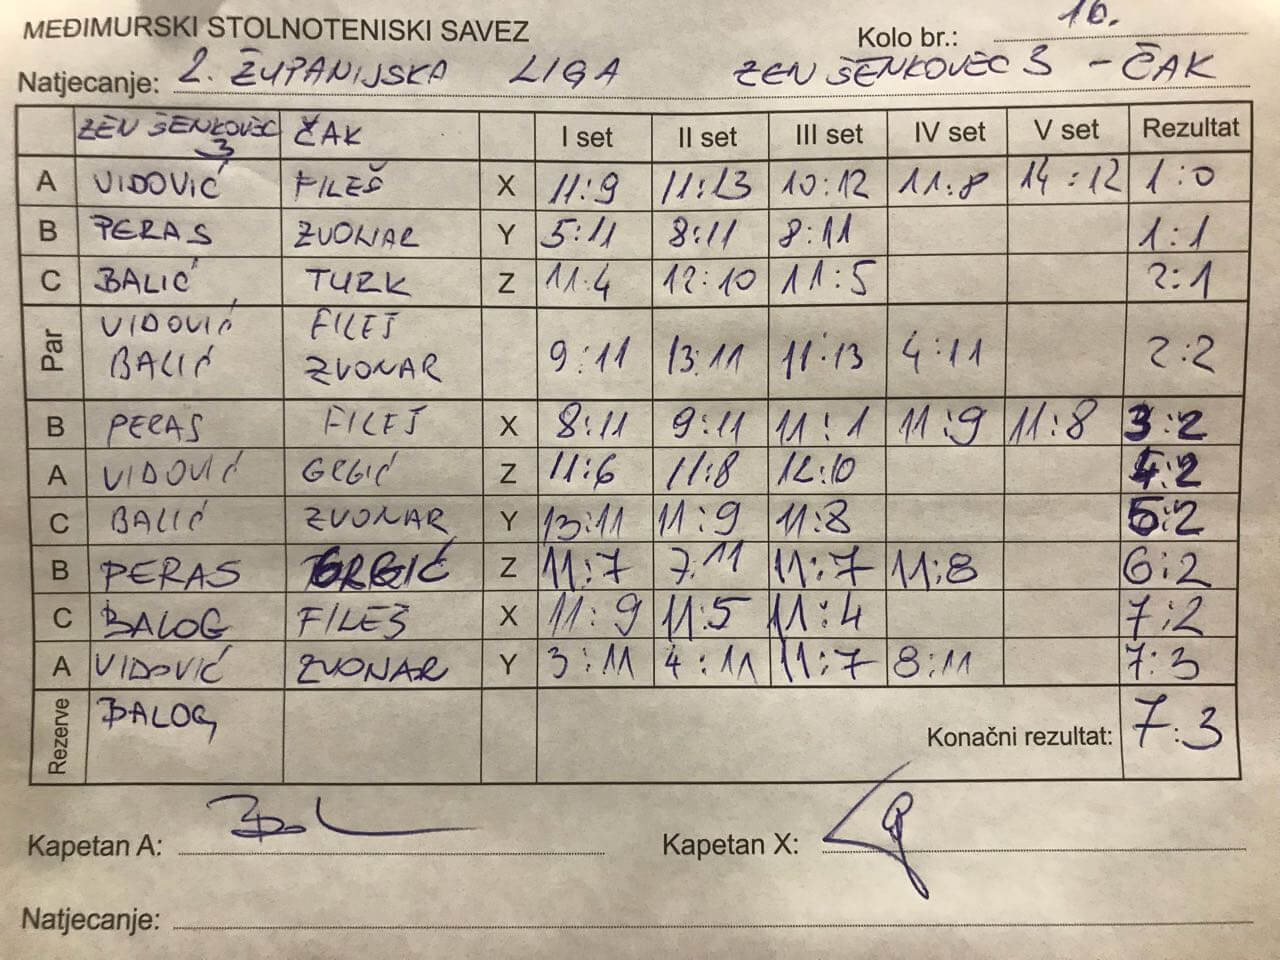 MEĐIMURSKI STOLNOTENISKI SAVEZ
Kolo br.: 16.
Natjecanje: 2. ŽUPANIJSKA LIGA ZEN ŠENKOVEC 3 - ČAK
ZEN ŠENKOVEC 3 ČAK I set II set III set IV set V set Rezultat
A VIDOVIĆ FILEŠ X 11:9 11:13 10:12 11:8 14:12 1:0
B PERAS ZVONAR Y 5:11 8:11 8:11 1:1
C BALIĆ TURK Z 11:4 12:10 11:5 2:1
Par VIDOVIĆ BALIĆ FILEŠ ZVONAR 9:11 13:11 11:13 4:11 2:2
B PERAS FILEŠ X 8:11 9:11 11:1 11:9 11:8 3:2
A VIDOVIĆ GRGIĆ Z 11:6 11:8 12:10 4:2
C BALIĆ ZVONAR Y 13:11 11:9 11:8 5:2
B PERAS GRGIĆ Z 11:7 7:11 11:7 11:8 6:2
C BALOG FILEŠ X 11:9 11:5 11:4 7:2
A VIDOVIĆ ZVONAR Y 3:11 4:11 11:7 8:11 7:3
Rezerve BALOG Konačni rezultat: 7:3
Kapetan A: Kapetan X:
Natjecanje: